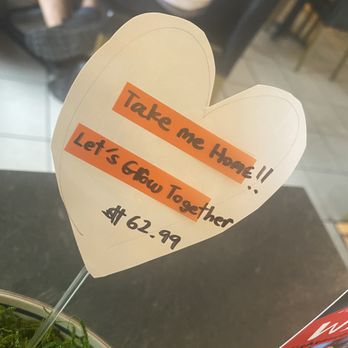 Take me Home!!
Let's Grow Together
$ 62.99